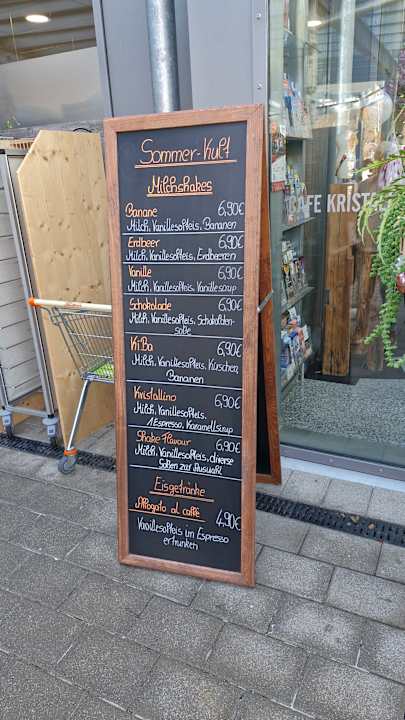 Sommer-Kult
Milchshakes
Banane 6,90€
Milch, Vanillesofteis, Bananen
Erdbeer 6,90€
Milch, Vanillesofteis, Erdbeeren
Vanille 6,90€
Milch, Vanillesofteis, Vanillesirup
Schokolade 6,90€
Milch, Vanillesofteis, Schokoladen-
soße
KiBa 6,90€
Milch, Vanillesofteis, Kirschen,
Bananen
Kristallino 6,90€
Milch, Vanillesofteis,
1 Espresso, Karamellsirup
Shake Flavour 6,90€
Milch, Vanillesofteis, diverse
Soßen zur Auswahl
Eisgetränke
Affogato al caffè 4,90€
Vanillesofteis im Espresso
ertrunken
CAFE KRISTE